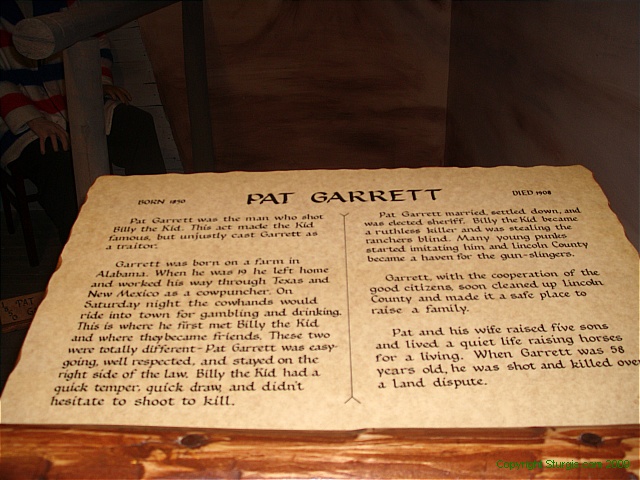 BORN 1850
PAT GARRETT
DIED 1908
Pat Garrett was the man who shot
Billy the Kid. This act made the Kid
famous, but unjustly cast Garrett as
a traitor.
Garrett was born on a farm in
Alabama. When he was 19 he left home
and worked his way through Texas and
New Mexico as a cowpuncher. On
Saturday night the cowhands would
ride into town for gambling and drinking.
This is where he first met Billy the Kid
and where they became friends. These two
were totally different- Pat Garrett was easy-
going, well respected, and stayed on the
right side of the law. Billy the Kid had a
quick temper, quick draw, and didn't
hesitate to shoot to kill.
Pat Garrett married, settled down, and
was elected sheriff. Billy the Kid became
a ruthless killer and was stealing the
ranchers blind. Many young punks
started imitating him, and Lincoln County
became a haven for the gun-slingers.
Garrett, with the cooperation of the
good citizens, soon cleaned up Lincoln
County and made it a safe place to
raise a family.
Pat and his wife raised five sons
and lived a quiet life raising horses
for a living. When Garrett was 58
years old, he was shot and killed over
a land dispute.
PAT
Copyright Sturgis.com